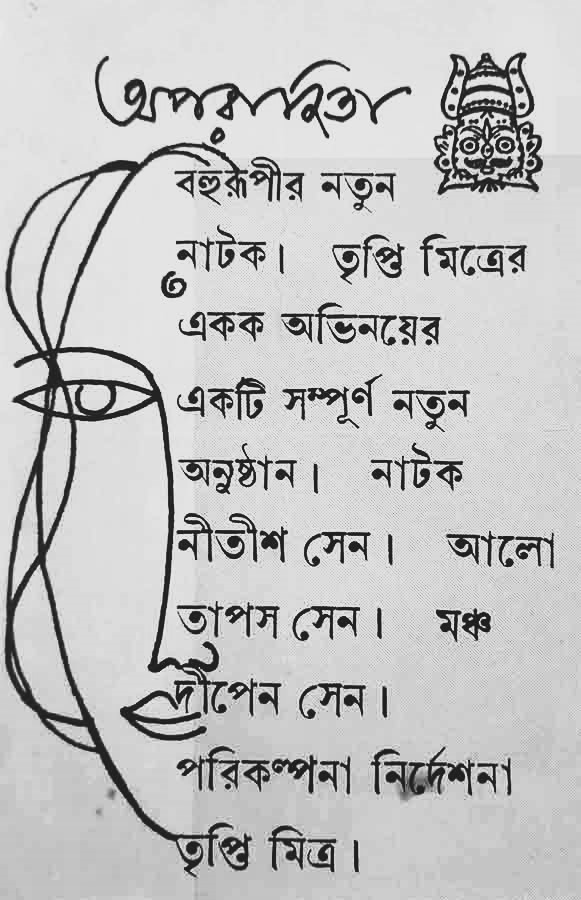 অপরাজিতা
বহুরূপীর নতুন
নাটক। তৃপ্তি মিত্রের
একক অভিনয়ের
একটি সম্পূর্ণ নতুন
অনুষ্ঠান। নাটক
নীতীশ সেন। আলো
তাপস সেন। মঞ্চ
দীপেন সেন।
পরিকল্পনা নির্দেশনা
তৃপ্তি মিত্র।